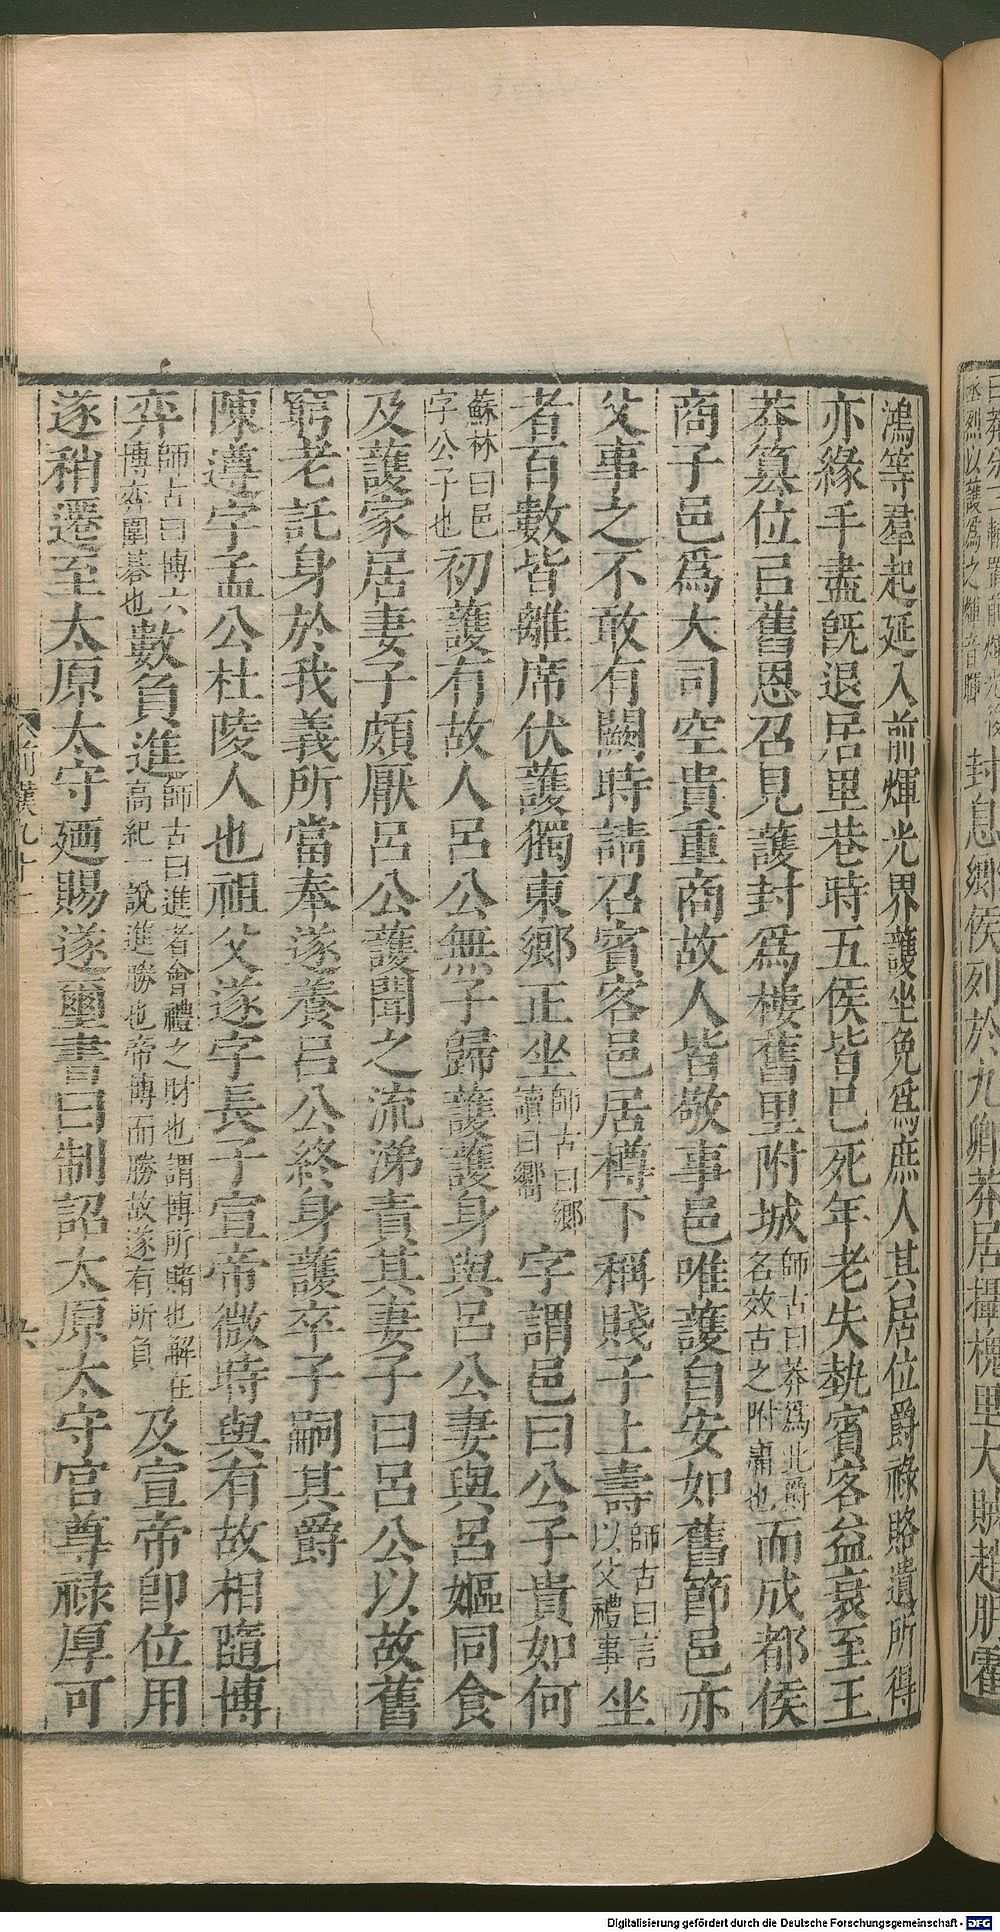 封息鄉侯列於九卿莽居攝槐里大賊趙朋霍
鴻等羣起延入前煇光界護坐免爲庶人其居位爵祿賂遺所得
亦緣手盡旣退居里巷時五侯皆已死年老失埶賓客益衰至王
莽篡位㠯舊恩召見護封爲樓舊里附城師古曰莽爲此爵名效古之附庸也而成都侯
商子邑爲大司空貴重商故人皆敬事邑唯護自安如舊節邑亦
父事之不敢有闕時請召賓客邑居樽下稱賤子上壽師古曰言以父禮事坐
者百數皆離席伏護獨東鄉正坐師古曰鄉讀曰嚮字謂邑曰公子貴如何
蘇林曰邑字公子也初護有故人呂公無子歸護護身與呂公妻與呂嫗同食
及護家居妻子頗厭呂公護聞之流涕責其妻子曰呂公以故舊
窮老託身於我義所當奉遂養呂公終身護卒子嗣其爵
陳遵字孟公杜陵人也祖父遂字長子宣帝微時與有故相隨博
弈師古曰博六博弈圍碁也數負進師古曰進者會禮之財也謂博所賭也解在高紀一說進勝也帝博而勝故遂有所負及宣帝卽位用
遂稍遷至太原太守廼賜遂璽書曰制詔太原太守官尊祿厚可
前漢九十二
六
Digitalisierung gefördert durch die Deutsche Forschungsgemeinschaft - DFG